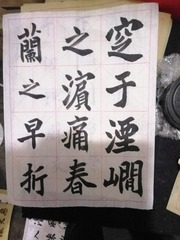 窆于湮
之濵痛春
蘭之早折